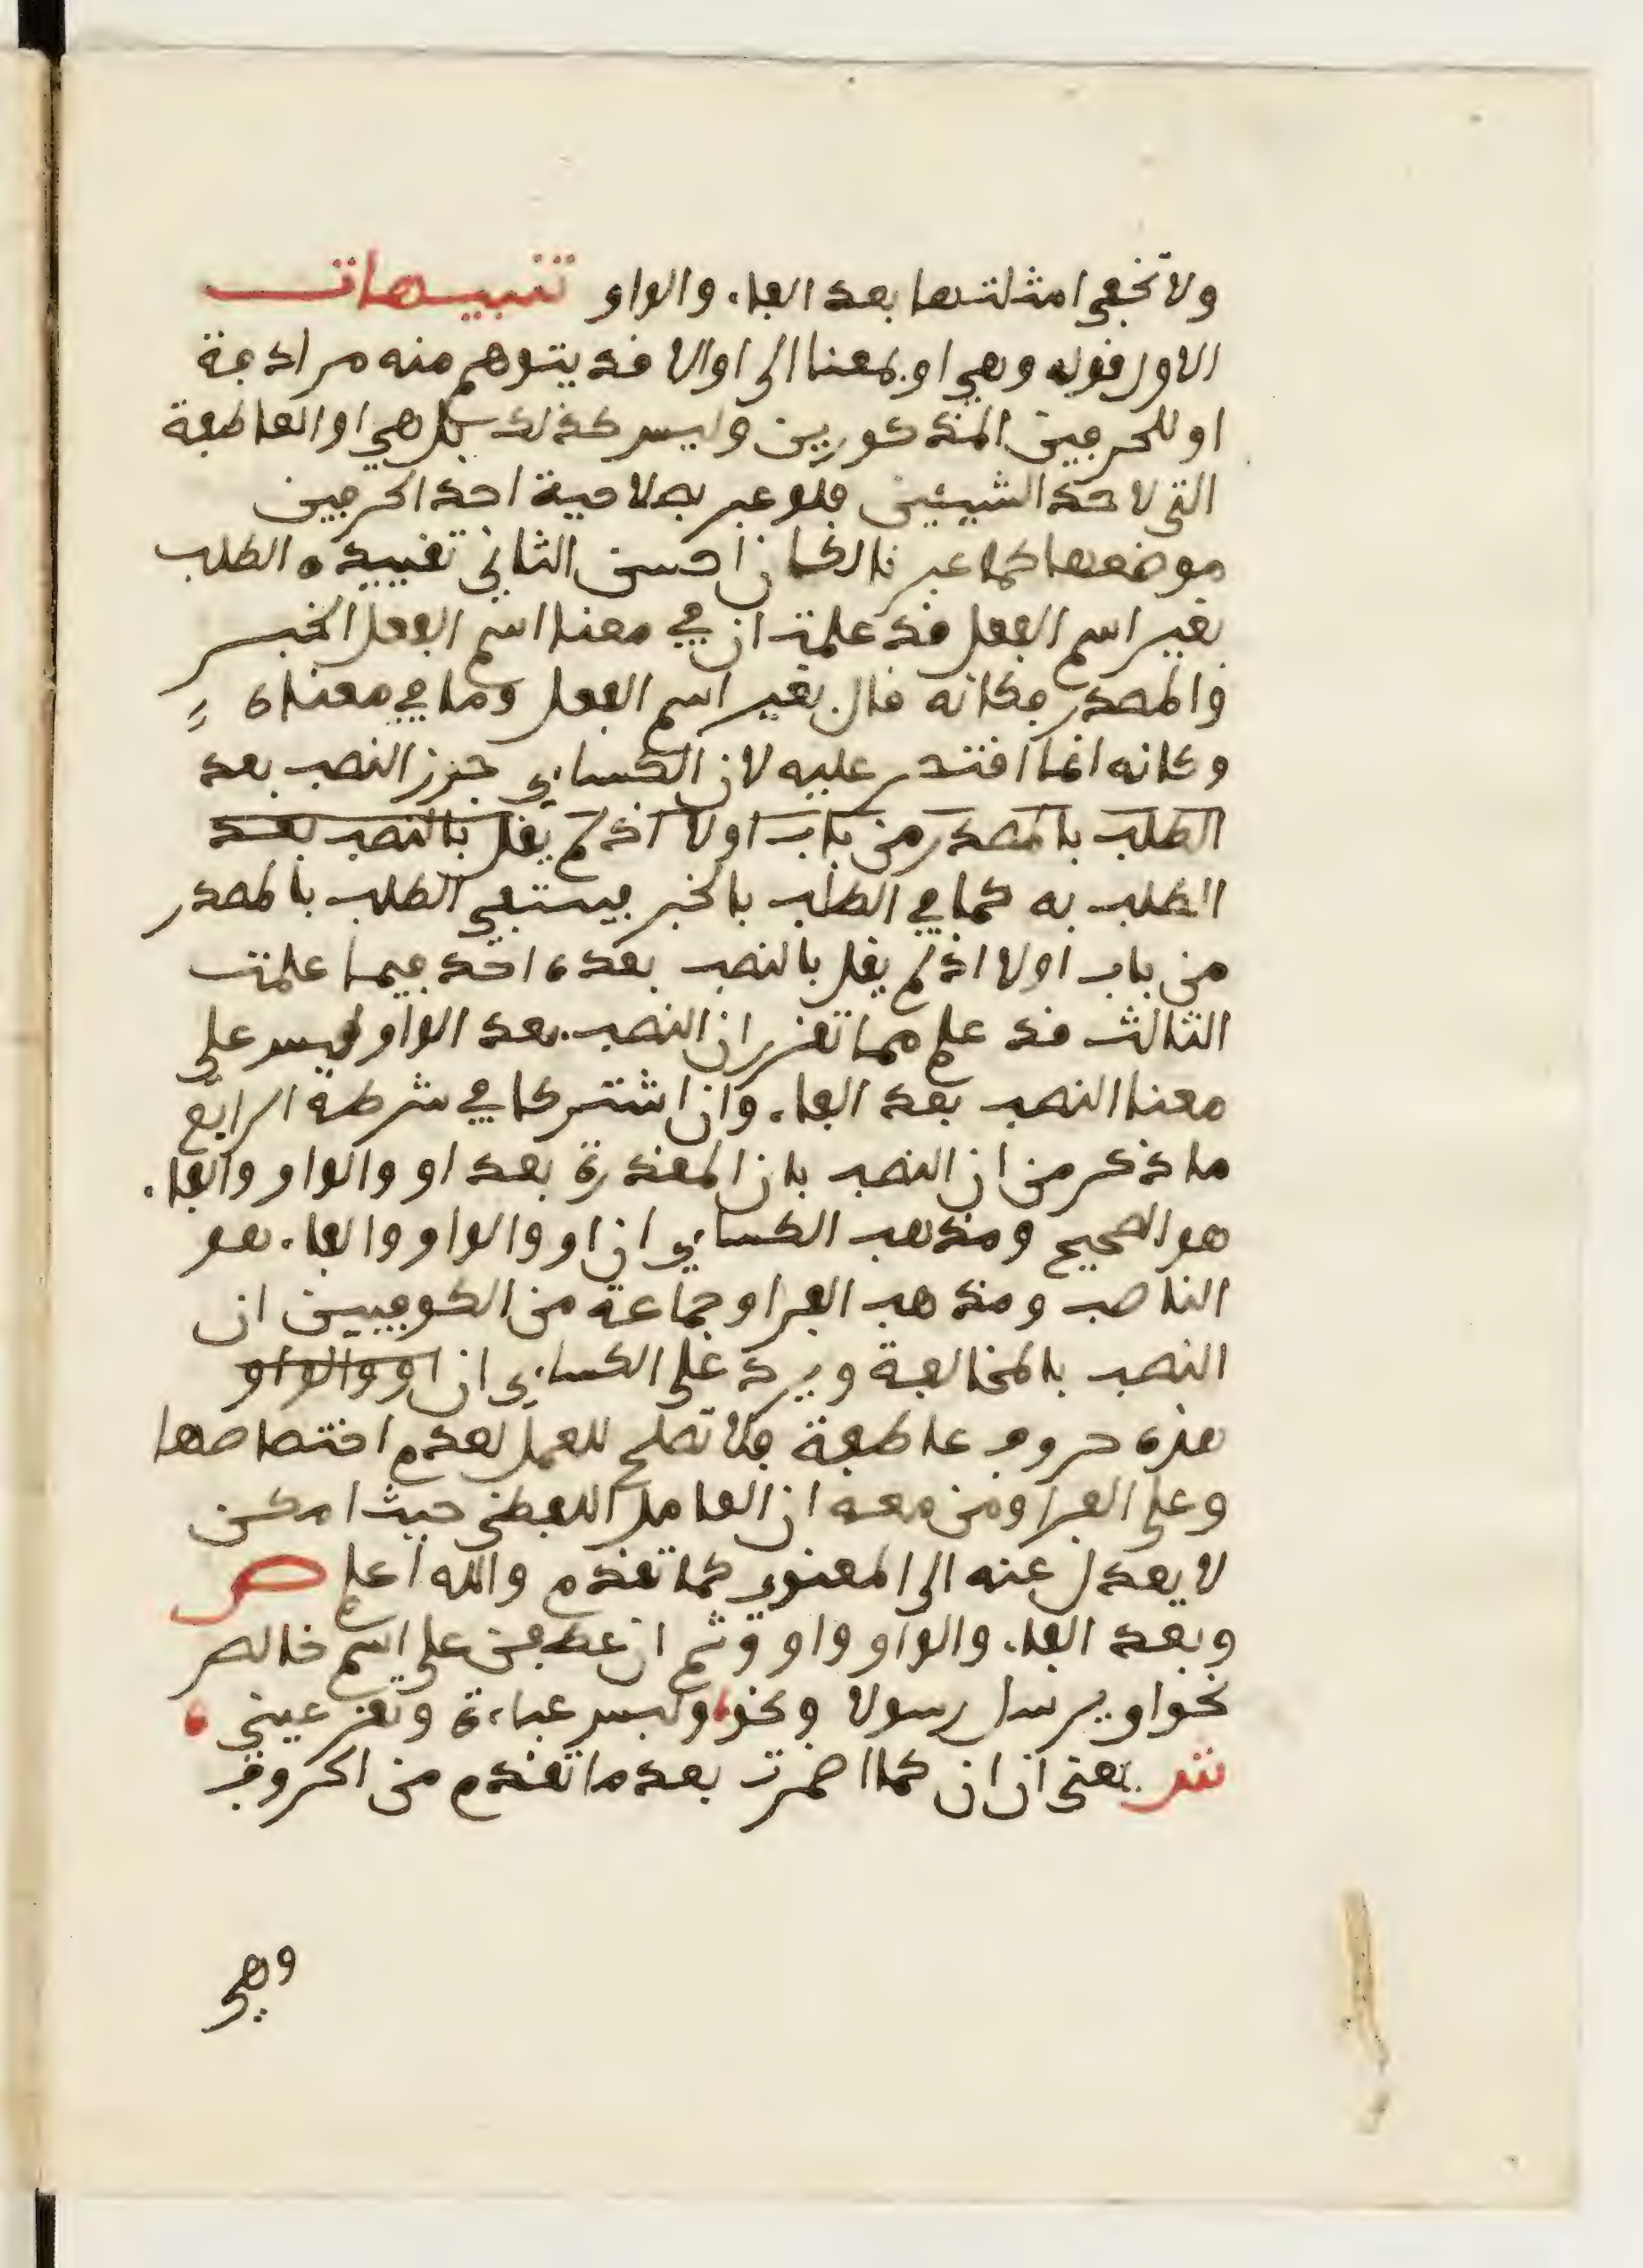 ولا تخفى امثلتها بعد الفاء والواو تنبيهات
الاول قوله وهي او بمعنا الى او الا قد يتوهم منه مرادفة
او للحرفين المذكورين وليس كذلك بل هي او العاطفة
التي لاحد الشيئين فلو عبر بصلاحية احد الحرفين
موضعها كما عبر نا لكان احسن الثاني تقييده الطلب
بغير اسم الفعل قد علمت ان في معنا اسم الفعل الخبر
والمصدر فكانه قال بغير اسم الفعل وما في معناه
وكانه انما اقتصر عليه لان الكساءي جوز النصب بعد
الطلب بالمصدر من باب اولا اذ لم يقل بالنصب بعد
الطلب به كما في الطلب بالخبر فيستفي الطلب بالمصدر
من باب اولا اذ لم يقل بالنصب بعده احد فيما علمت
الثالث قد علم مما تقرر ان النصب بعد الواو ليس على
معنا النصب بعد الفاء وان اشتركا في شرطه الرابع
ما ذكر من ان النصب بان المقدرة بعد او والواو والفاء
هو الصحيح ومذهب الكساءي ان او والواو والفاء هو
الناصب ومذهب الفرا وجماعة من الكوفيين ان
النصب بالمخالفة ويرد على الكساءي ان او والواو
هذه حروف عاطفة فلا تصلح للعمل لعدم اختصاصها
وعلى الفرا ومن معه ان العامل اللفظي حيث امكن
لا يعدل عنه الى المعنوي كما تقدم والله اعلم ص
وبعد الفاء والواو واو وثم ان عطفن على اسم خالص
نحو او يرسل رسولا ونحو ولبس عباءة وتقر عيني
ش يعني ان ان كما اضمرت بعد ما تقدم من الحروف
وهي